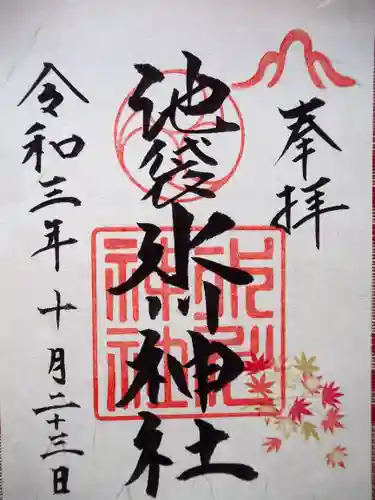 奉拝
池袋氷川神社
氷川
神社
令和三年十月二十三日